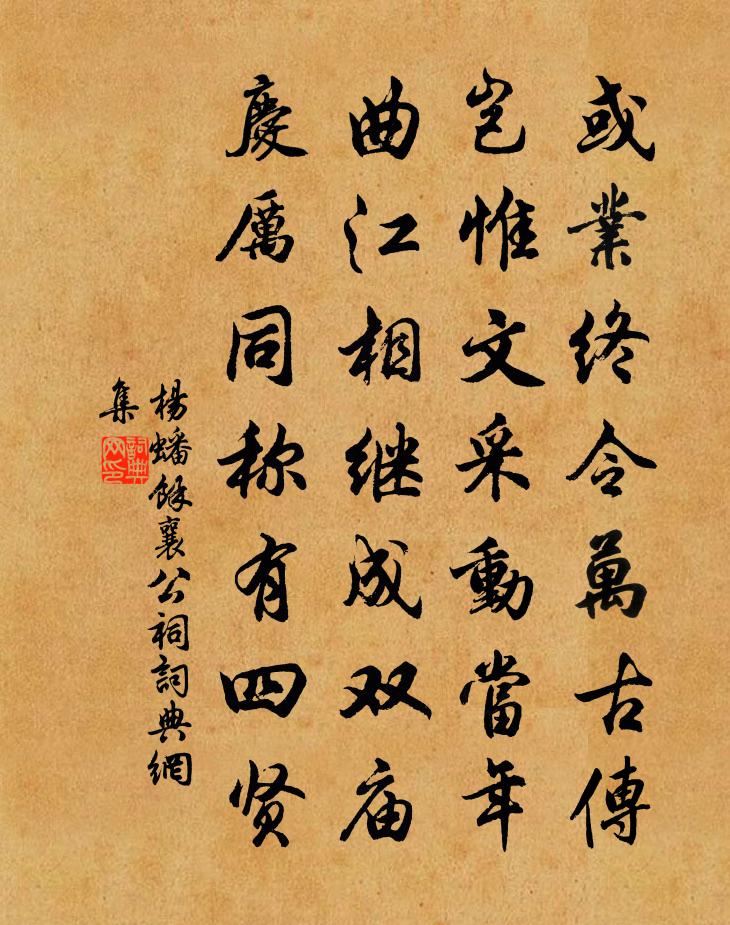 或業终令萬古傳
岂惟文采動當年
曲江相继成双庙
慶厲同称有四贤
楊蟠餘襄公祠詞典網
集
詞典
网印